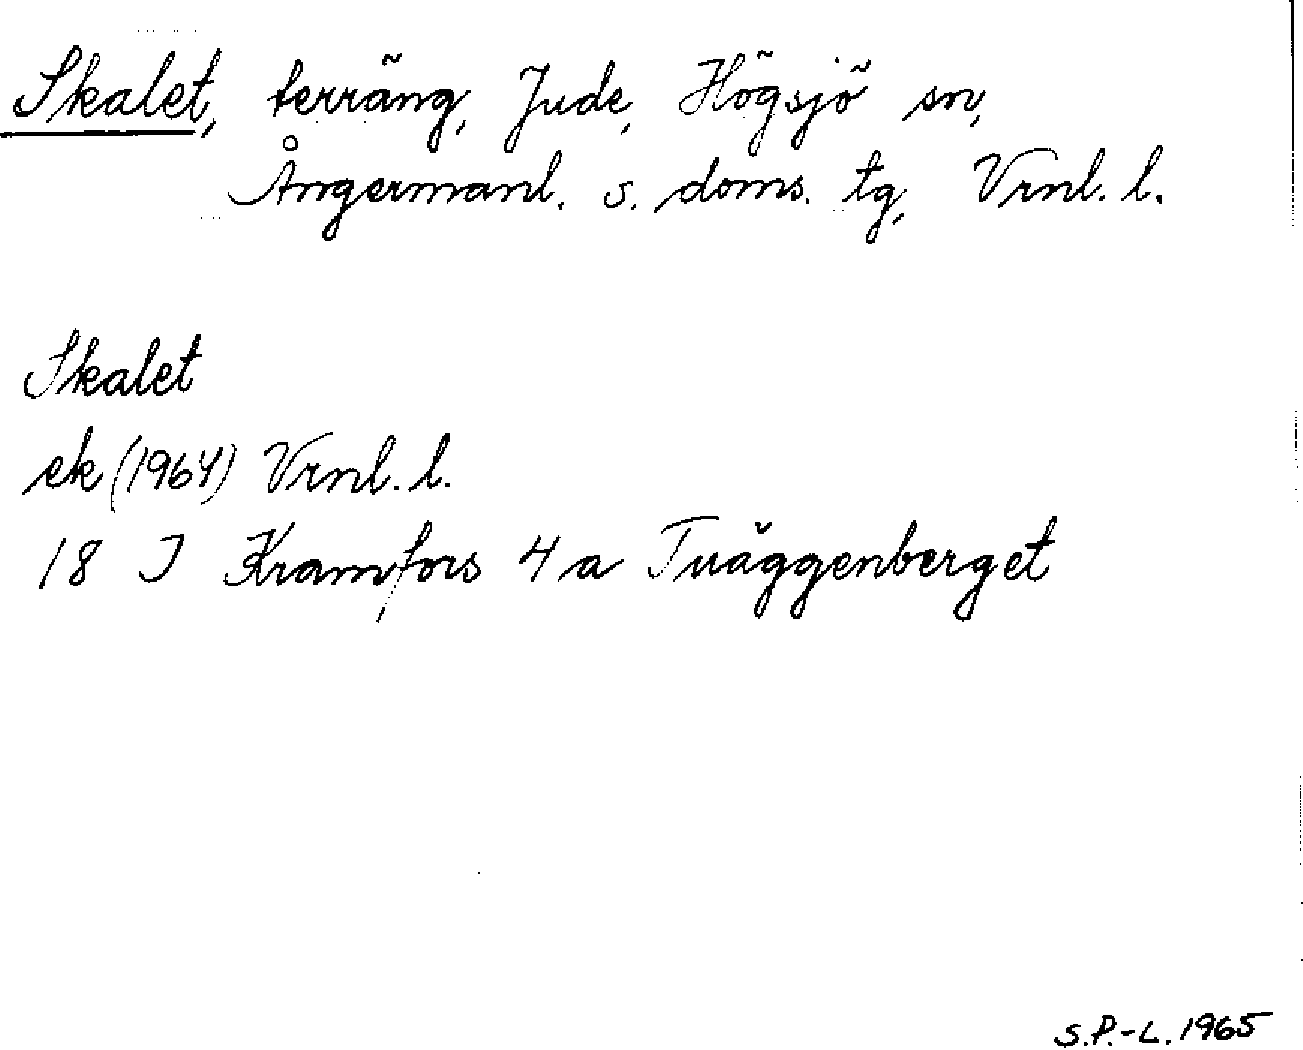 Skalet, terräng, Jude, Högsjö sn,
Ångermanl. s. doms. tg, Vrnl. l.
Skalet
ek (1964) Vrnl. l.
18 I Kramfors 4 a Tväggenberget
S.P.-L. 1965